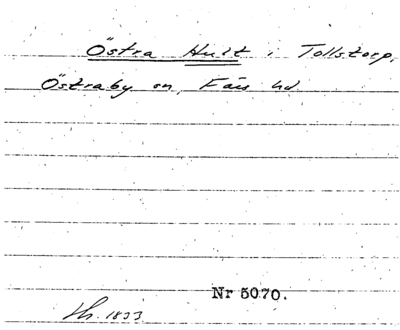 Östra Hult i Tollstorp,
Östraby sn, Färs hd
Nr 5070.
Hh. 1833